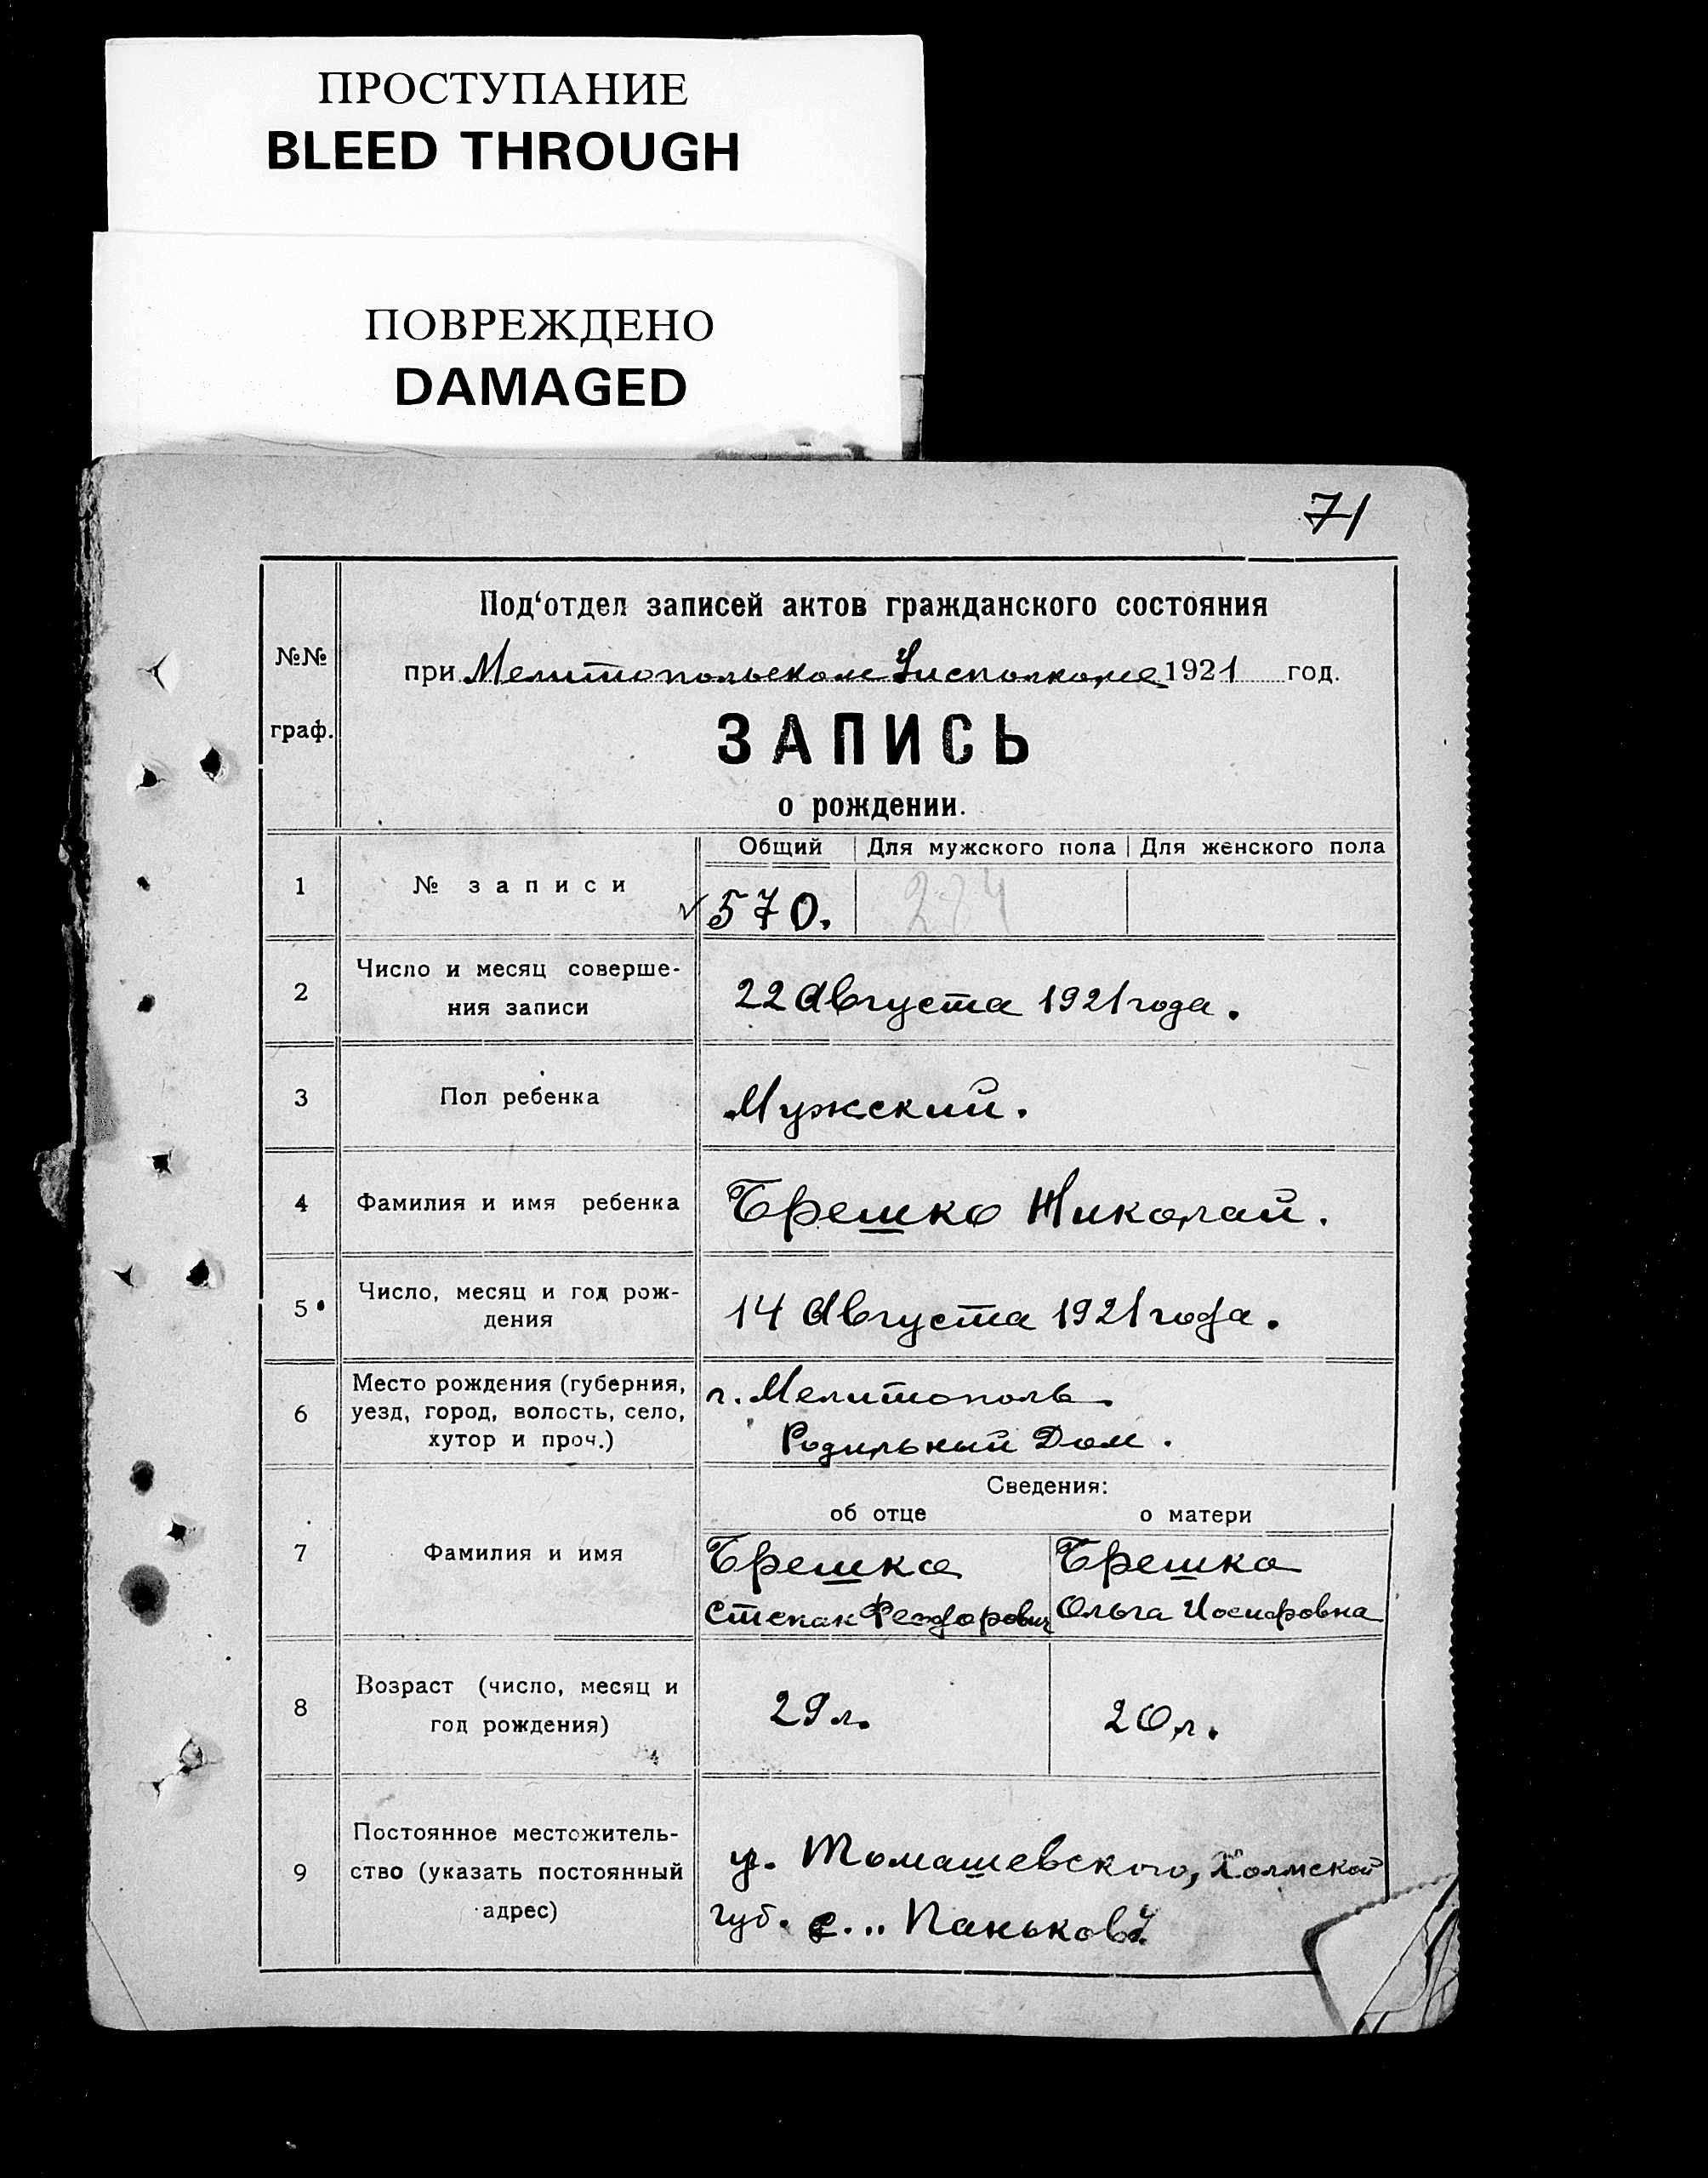 ПРОСТУПАНИЕ
BLEED THROUGH
ПОВРЕЖДЕНО
DAMAGED
71
№№
граф.
Под‘отдел записей актов гражданского состояния
при Мелитопольском Уисполкоме 1921 год.
ЗАПИСЬ
о рождении.
Общий Для мужского пола Для женского пола
1 № записи 570.
2 Число и месяц соверше-
ния записи
22 Августа 1921 года.
3 Пол ребенка Мужский.
4 Фамилия и имя ребенка Брешко Николай.
5 Число, месяц и год рож-
дения
14 Августа 1921 года.
6 Место рождения (губерния,
уезд, город, волость, село,
хутор и проч.)
г. Мелитополь
Родильный Дом.
Сведения:
об отце о матери
7 Фамилия и имя
Брешко Брешко
Степан Феодорович Ольга Иосифовна
8 Возраст (число, месяц и
год рождения)
29 л. 20 л.
9 Постоянное местожитель-
ство (указать постоянный
адрес)
у. Томашевского, Холмской
губ. с. Паньков